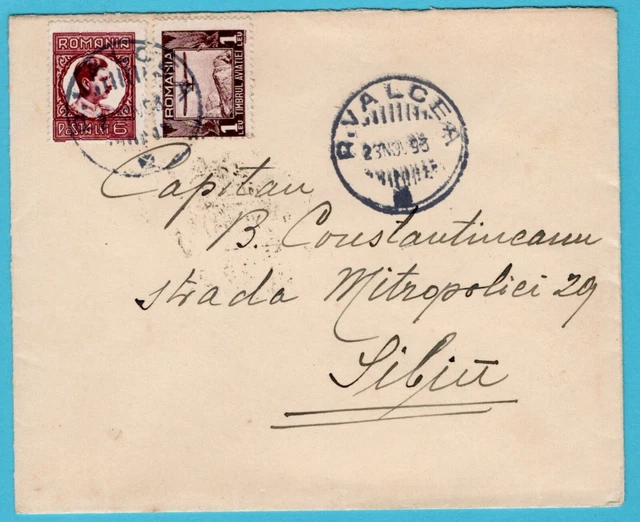 ROMANIA
POSTA LEI 6
1 LEU
ROMANIA
TIMBRUL AVIATIEI
1 LEU
R.VALCEA
Capitan
B. Constantineanu
strada Mitropoliei 29
Sibiu